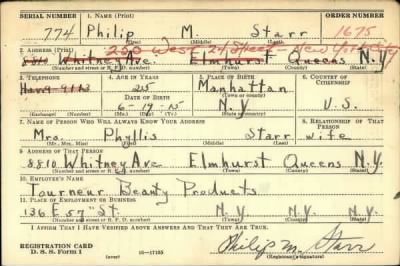 SERIAL NUMBER 1. NAME (Print) ORDER NUMBER
774 Philip M. Starr 1675
(First) (Middle) (Last)
2. ADDRESS (Print) 250 West 24 Street - New York City
8810 Whitney Ave. Elmhurst Queens N.Y.
(Number and street or R. F. D. number) (Town) (County) (State)
3. TELEPHONE 4. AGE IN YEARS 5. PLACE OF BIRTH 6. COUNTRY OF CITIZENSHIP
25 Manhattan
DATE OF BIRTH (Town) (County)
6-19-15 N.Y U.S.
(Exchange) (Number) (Mo.) (Day) (Yr.) (State or country)
7. NAME OF PERSON WHO WILL ALWAYS KNOW YOUR ADDRESS 8. RELATIONSHIP OF THAT PERSON
Mrs. Phyllis Starr wife
(Mr., Mrs., Miss) (First) (Middle) (Last)
9. ADDRESS OF THAT PERSON
8810 Whitney Ave Elmhurst Queens N.Y.
(Number and street or R. F. D. number) (Town) (County) (State)
10. EMPLOYER'S NAME
Tourneur Beauty Products
11. PLACE OF EMPLOYMENT OR BUSINESS
136 E 57th St. N.Y. N.Y. N.Y.
(Number and street or R. F. D. number) (Town) (County) (State)
I AFFIRM THAT I HAVE VERIFIED ABOVE ANSWERS AND THAT THEY ARE TRUE.
REGISTRATION CARD Philip M. Starr
D. S. S. Form 1 (over) 16-17105 (Registrant's signature)